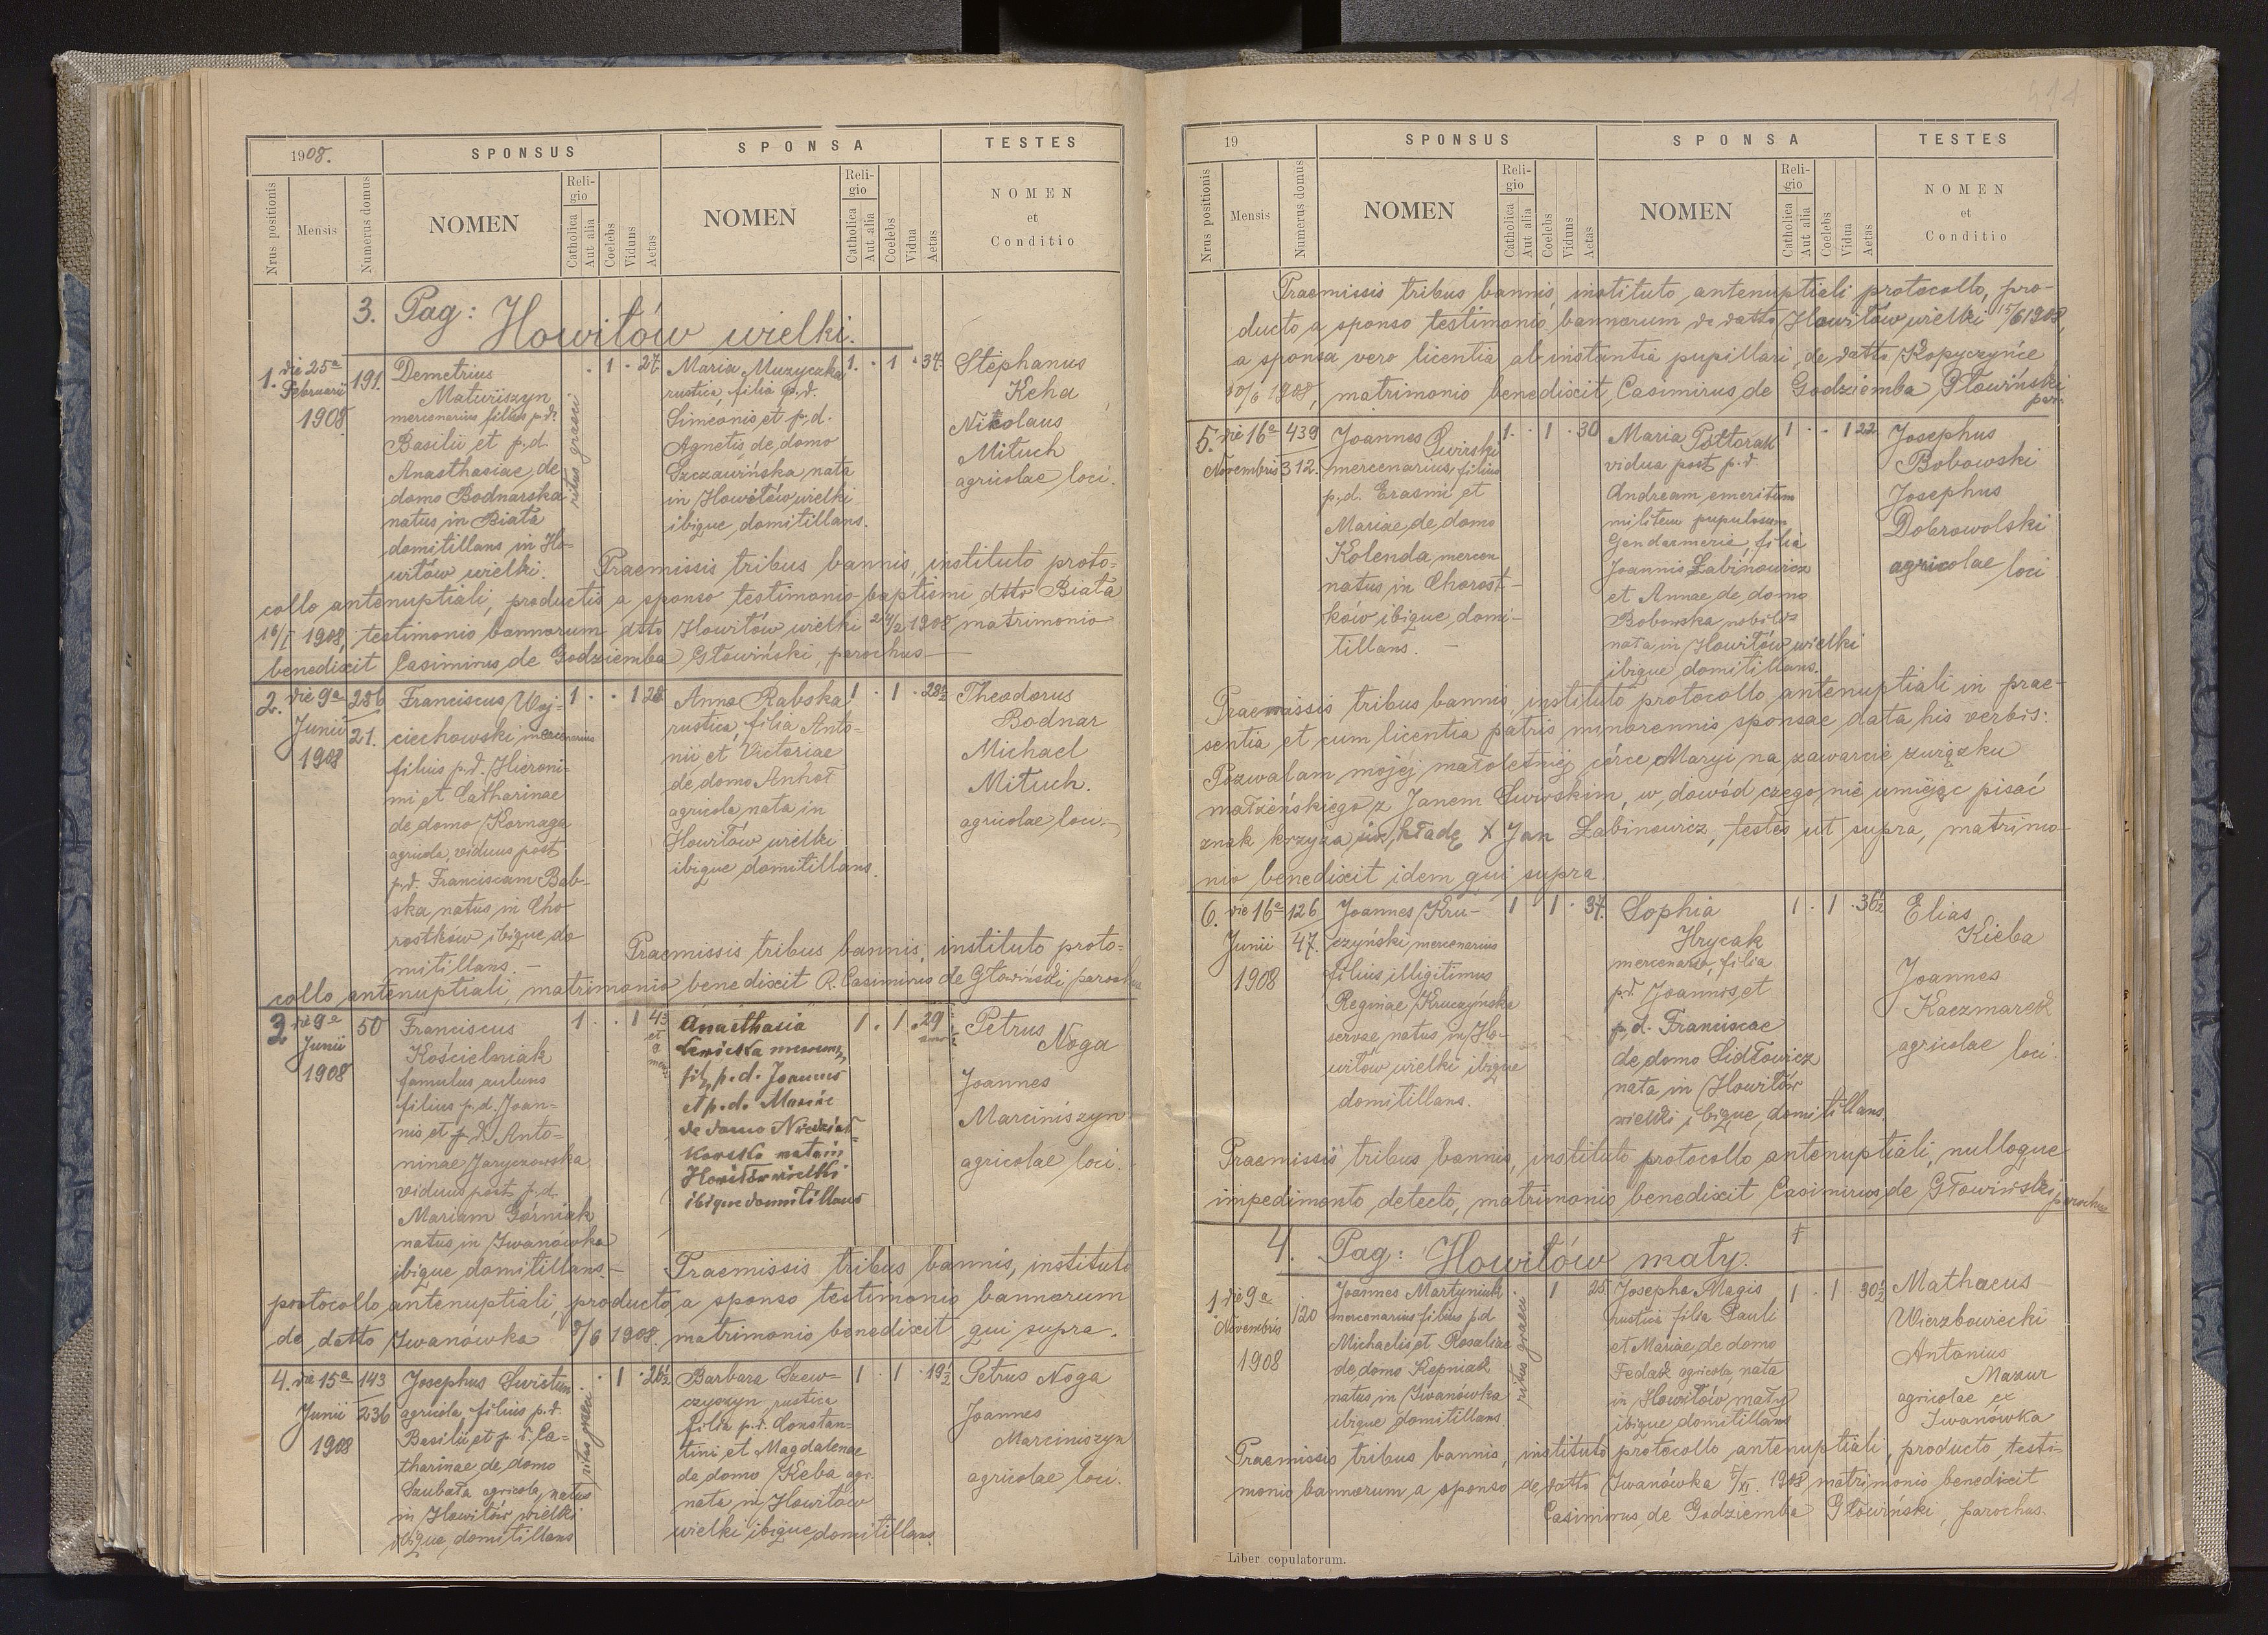 1908.
SPONSUS
SPONSA
TESTES
Nrus positionis
Mensis
Numerus domus
NOMEN
Religio
Catholica
Aut alia
Coelebs
Viduus
Aetas
NOMEN
Religio
Catholica
Aut alia
Coelebs
Vidua
Aetas
NOMEN
et
Conditio
3. Pag: Howiłów wielki.
1. die 25a
Februarii
1908
191.
Demetrius
Maturiszyn
mercenarius filius p.d.
Basilii et p.d.
Anasthasiae de
domo Bodnarska
natus in Biała
domitillans in Ho-
wiłów wielki.
ritus graeci
1 · 27
Maria Muzyczka
rustica, filia p.d.
Simeonis et p.d.
Agnetis de domo
Szczawińska nata
in Howiłów wielki
ibique domitillans.
1. · 1 · 34
Stephanus
Keha
Nikolaus
Mituch
agricolae loci.
Praemissis tribus bannis, instituto proto-
collo antenuptiali, productis a sponso testimonio baptismi dtto Biała
16/I 1908, testimonio bannorum dtto Howiłów wielki 24/2 1908 matrimonio
benedixit Casimirus de Godziemba Głowiński, parochus
2. die 9a
Junii
1908
286
21.
Franciscus Woj-
ciechowski mercenarius
filius p.d. Hieroni-
mi et Catharinae
de domo Kornaga
agricola, viduus post
p.d. Franciscam Bab-
ska natus in Cho-
rostków ibique do
mitillans.
1 · · 1 28
Anna Rabska
rustica, filia Anto-
nii et Victoriae
de domo Anhoł
agricola nata in
Howiłów wielki
ibique domitillans.
1 · 1 · 28½
Theodorus
Bodnar
Michael
Mituch.
agricolae loci.
Praemissis tribus bannis, instituto proto-
collo antenuptiali, matrimonio benedixit R. Casimirus de Głowiński parochus
3 die 9a
Junii
1908
50
Franciscus
Kościelniak
famulus aulicus
filius p.d. Joan-
nis et p.d. Anto-
ninae Jaryczowska
viduus post p.d.
Mariam Górniak
natus in Iwanówka
ibique domitillans.
1 · · 1 43
et
9
mens.
Anasthasia
fil. p.d. Joannis
et p.d. Mariae
de domo Niedział-
kowska nata in
Howiłów wielki
ibique domitillans
1 · 1 · 29
Petrus
Noga
Joannes
Marciniszyn
agricolae loci.
Praemissis tribus bannis, instituto
protocollo antenuptiali, producto a sponso testimonio bannorum
de datto Iwanówka 9/6 1908. matrimonio benedixit qui supra.
4. die 15a
Junii
1908
143
236
Josephus Swistun
agricola, filius p.d.
Basilii et p.d. Ca-
tharinae de domo
Saubała agricola, natus
in Howiłów wielki
ibique domitillans
ritus graeci
· 1 · 26½
Barbara Szew-
czyszyn rustica
filia p.d. Constan-
tini et Magdalenae
de domo Keba agr.
nata in Howiłów
wielki ibique domitillans.
1 · 1 · 19½
Petrus Noga
Joannes
Marciniszyn
agricolae loci.
19
SPONSUS
SPONSA
TESTES
Nrus positionis
Mensis
Numerus domus
NOMEN
Religio
Catholica
Aut alia
Coelebs
Viduus
Aetas
NOMEN
Religio
Catholica
Aut alia
Coelebs
Vidua
Aetas
NOMEN
et
Conditio
Praemissis tribus bannis, instituto antenuptiali protocollo, pro-
ducto a sponso testimonio bannorum de datto Howiłów wielki 15/6 1908,
a sponsa vero licentia ab instantia pupillari de datto Kopyczyńce
10/6 1908, matrimonio benedixit, Casimirus de Godziemba Głowiński
par.
5. die 16a
Novembris
439
312.
Joannes Swirski
mercenarius, filius
p.d. Erasmi et
Mariae de domo
Kolenda mercen
natus in Chorost-
ków ibique domi-
tillans.
1 · · 1 · 30
Maria Półtorak
vidua post p.d.
Andream emeritum
militem
Gendarmerie, filia
Joannis Łabinowicz
et Annae de domo
Bobowska nobilis
nata in Howiłów wielki
ibique domitillans.
1 · · 1 22
Josephus
Bobowski
Josephus
Dobrowolski
agricolae loci
Praemissis tribus bannis, instituto protocollo antenuptiali in prae-
sentia et cum licentia patris minorennis sponsae data his verbis:
Pozwalam mojej małoletniej córce Maryi na zawarcie związku
małżeńskiego z Janem Swirskim, w dowód czego nie umiejąc pisać
znak krzyża kładę X Jan Łabinowicz, testes ut supra, matrimo-
nio benedixit idem qui supra.
6. die 16a
Junii
1908
126
47.
Joannes Kru-
czyński mercenarius
filius illigitimus
Reginae Kruczyńska
servae, natus in Ho-
wiłów wielki ibique
domitillans.
1 · 1 · 37.
Sophia
Hrycak
mercenaria, filia
p.d. Joannis et
p.d. Franciscae
de domo Sidłowicz
nata in Howiłów
wielki ibique domitillans.
1 · 1 · 36½
Elias
Kieba
Joannes
Kaczmarek
agricolae loci.
Praemissis tribus bannis, instituto protocollo antenuptiali, nulloque
impedimento detecto, matrimonio benedixit Casimirus de Głowiński parochus
4. Pag: Howiłów mały.
1. die 9a
Novembris
1908
120
Joannes Martyniuk
mercenarius filius p.d.
Michaelis et Rosaliae
de domo Kepniak
natus in Iwanówka
ibique domitillans.
ritus graeci
1 25.
Josepha Magis
rustica filia Pauli
et Mariae de domo
Fedak agricola, nata
in Howiłów mały
ibique domitillans
1 · 1 · 30½
Mathaeus
Wierzbowiecki
Antonius
Mazur
agricolae ex
Iwanówka
Praemissis tribus bannis, instituto protocollo antenuptiali, producto testi-
monio bannorum a sponso de datto Iwanówka /XI. 1908 matrimonio benedixit
Casimirus de Godziemba Głowiński, parochus.
Liber copulatorum.